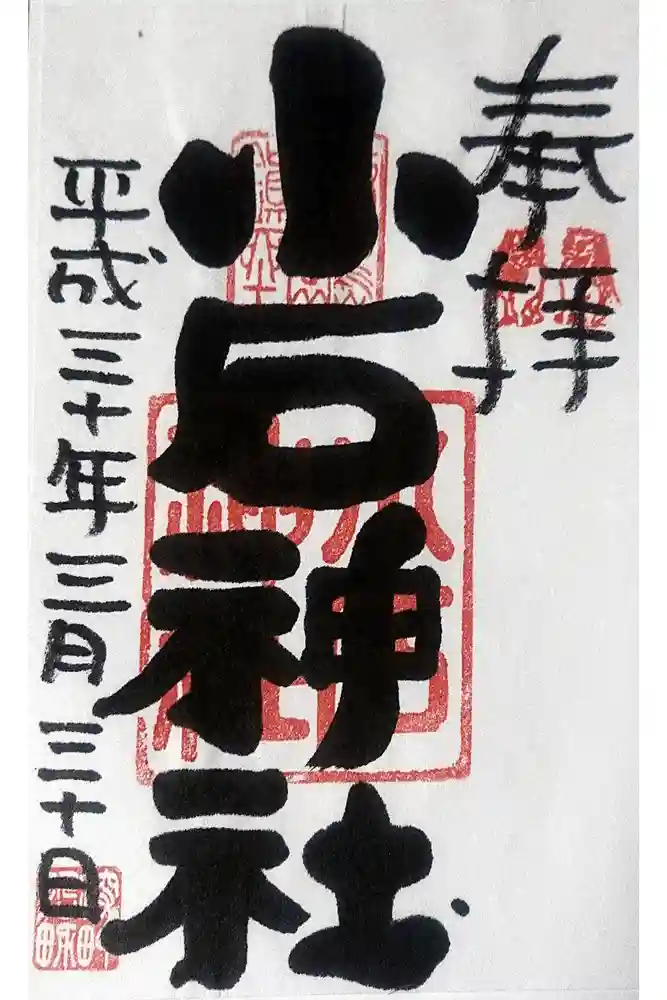 奉拝
小石神社
平成三十年三月三十日
小石
神社